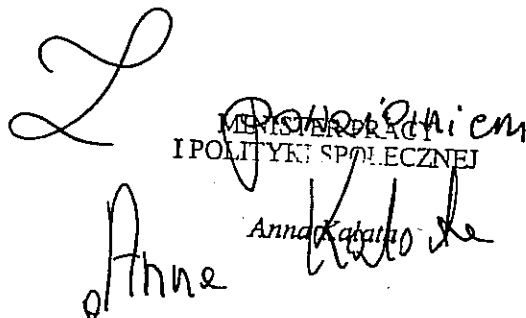 Z poważaniem
MINISTER PRACY
I POLITYKI SPOŁECZNEJ
Anna Kalata
Anna Kalata